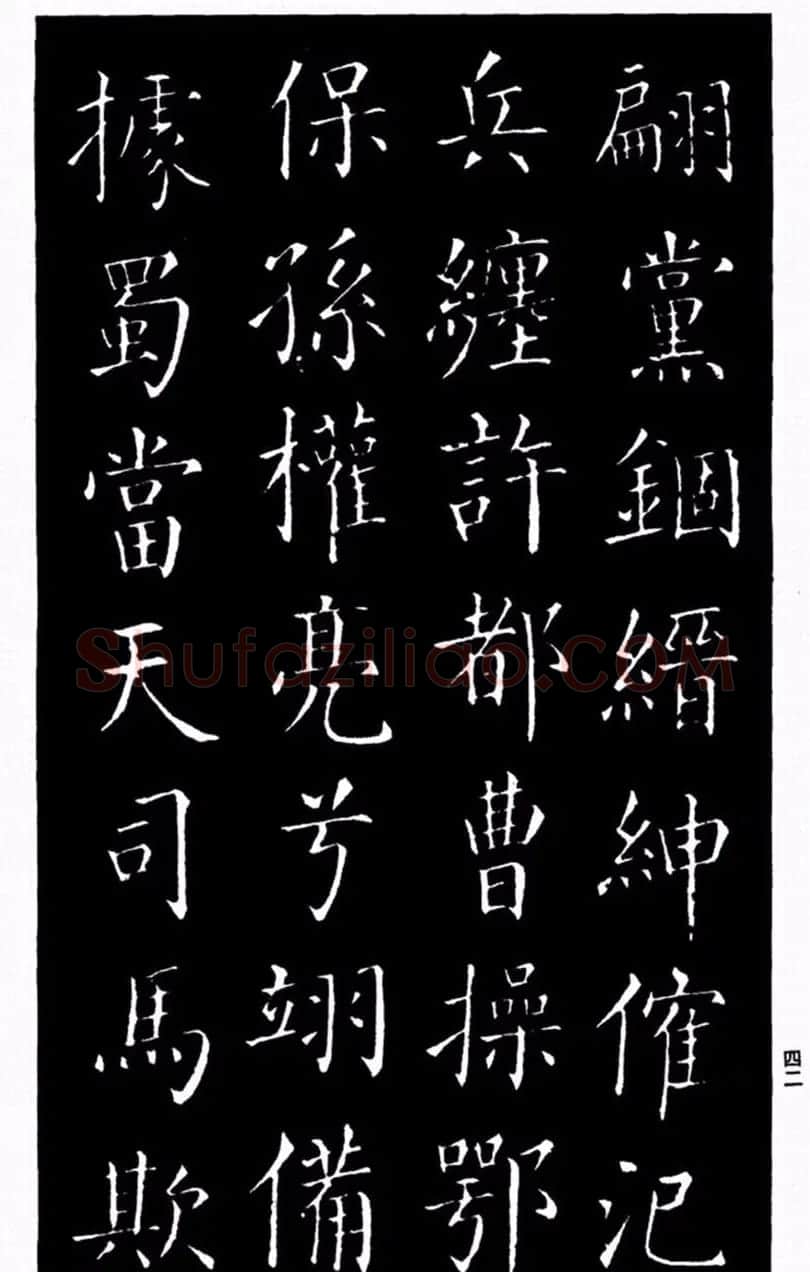 翩黨錮縉紳傕汜
兵纏許都曹操鄂
保孫權亮兮翊備
據蜀當天司馬欺
四二
Shufaziliao.COM